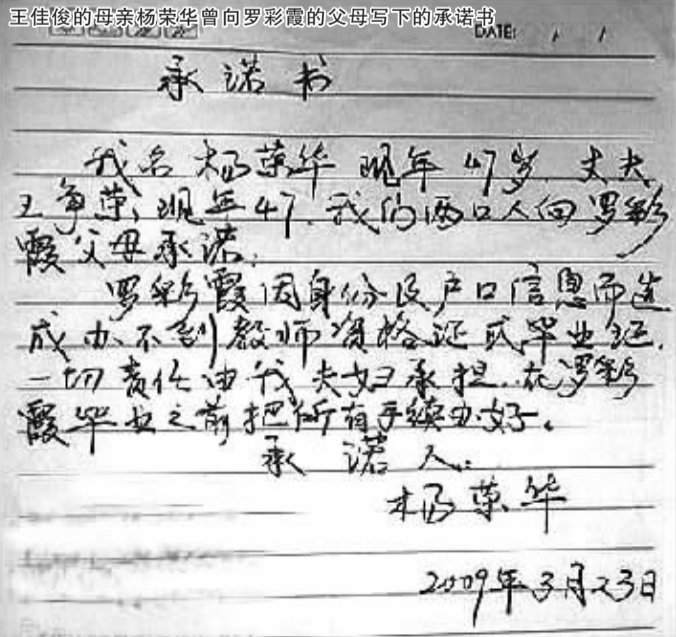 王佳俊的母亲杨荣华曾向罗彩霞的父母写下的承诺书
DATE: / /
承诺书
我名杨荣华现年47岁.丈夫
王争荣,现年47.我们两口人向罗彩
霞父母承诺:
罗彩霞因身份及户口信息而造
成办不到教师资格证或毕业证.
一切责任由我夫妇承担.在罗彩
霞毕业之前把所有手续办好。
承诺人:
杨荣华
2009年3月23日